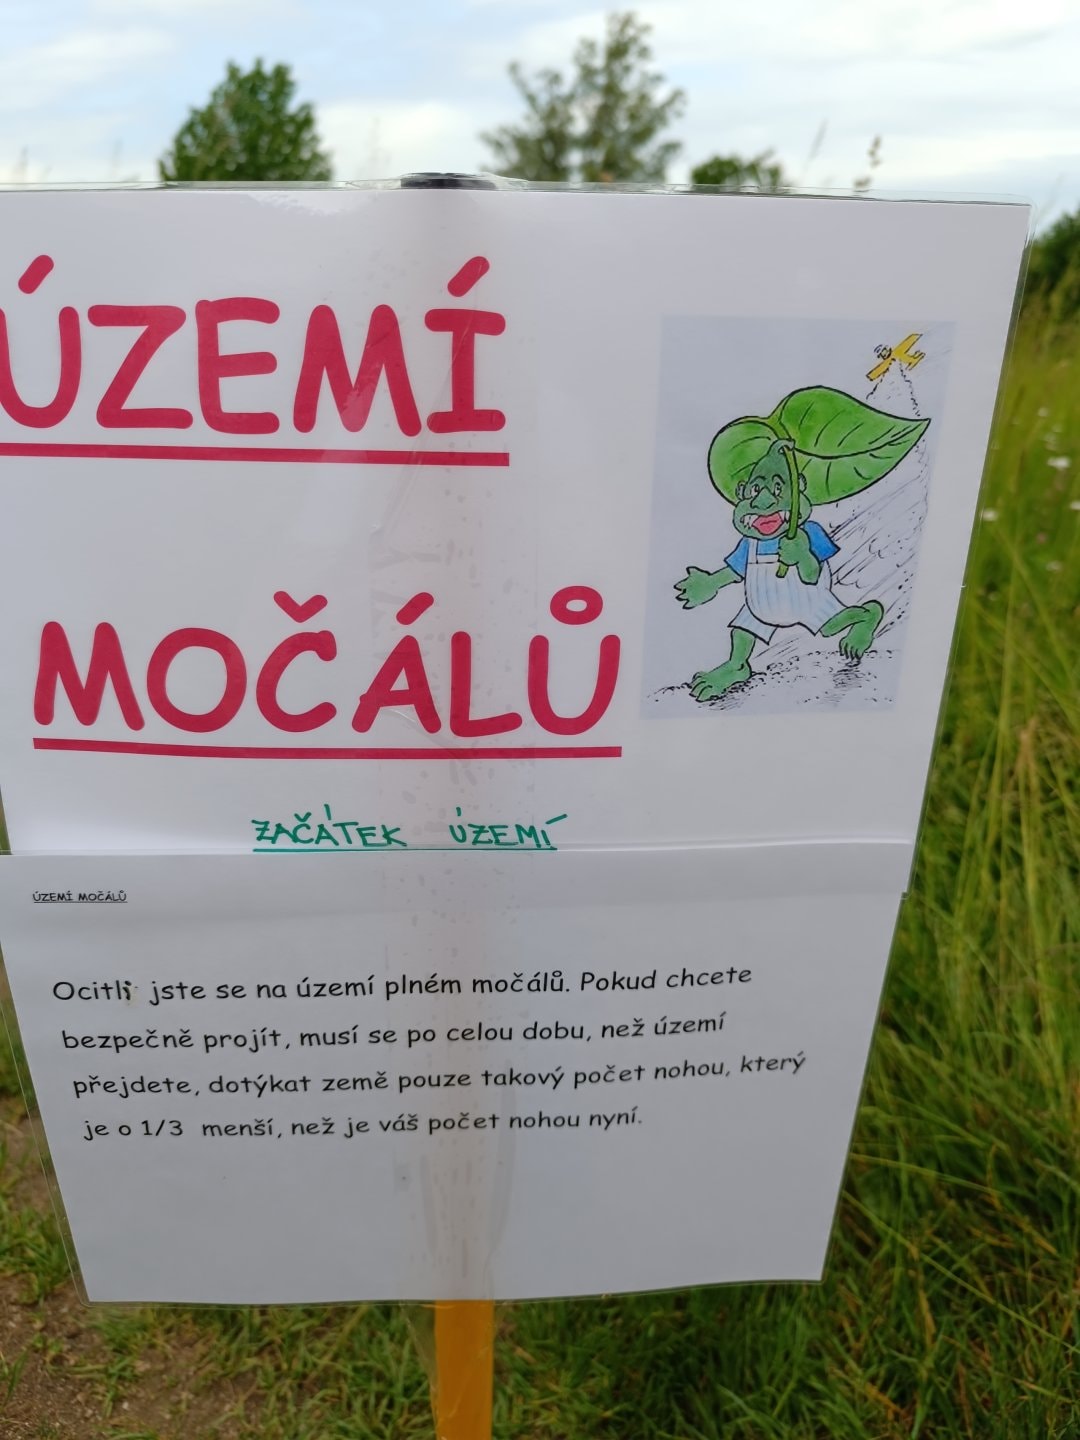 ÚZEMÍ
MOČÁLŮ
ZAČÁTEK ÚZEMÍ
ÚZEMÍ MOČÁLŮ
Ocitli jste se na území plném močálů. Pokud chcete
bezpečně projít, musí se po celou dobu, než území
přejdete, dotýkat země pouze takový počet nohou, který
je o 1/3 menší, než je váš počet nohou nyní.